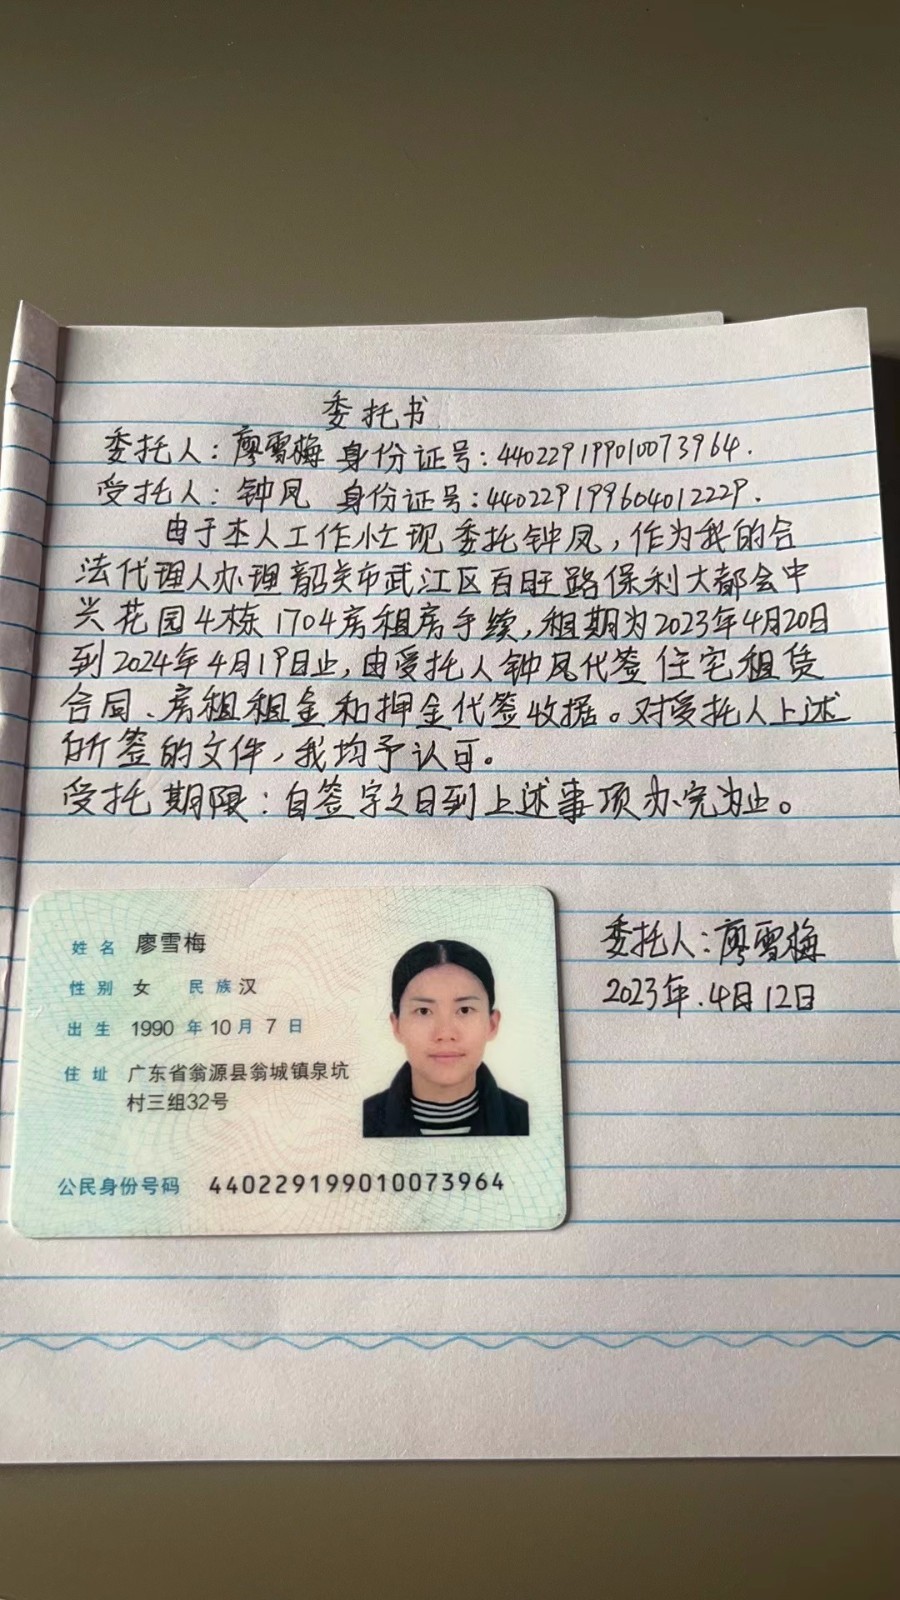 委托书
委托人：廖雪梅 身份证号：440229199010073964.
受托人：钟凤 身份证号：440229199604012229.
由于本人工作忙现委托钟凤，作为我的合
法代理人办理韶关市武江区百旺路保利大都会中
兴花园4栋1704房租房手续，租期为2023年4月20日
到2024年4月19日止，由受托人钟凤代签住宅租赁
合同、房租租金和押金代签收据。对受托人上述
所签的文件，我均予认可。
受托期限：自签字之日到上述事项办完为止。
委托人：廖雪梅
2023年.4月12日
姓名 廖雪梅
性别 女 民族 汉
出生 1990 年 10 月 7 日
住址 广东省翁源县翁城镇泉坑
村三组32号
公民身份号码 440229199010073964